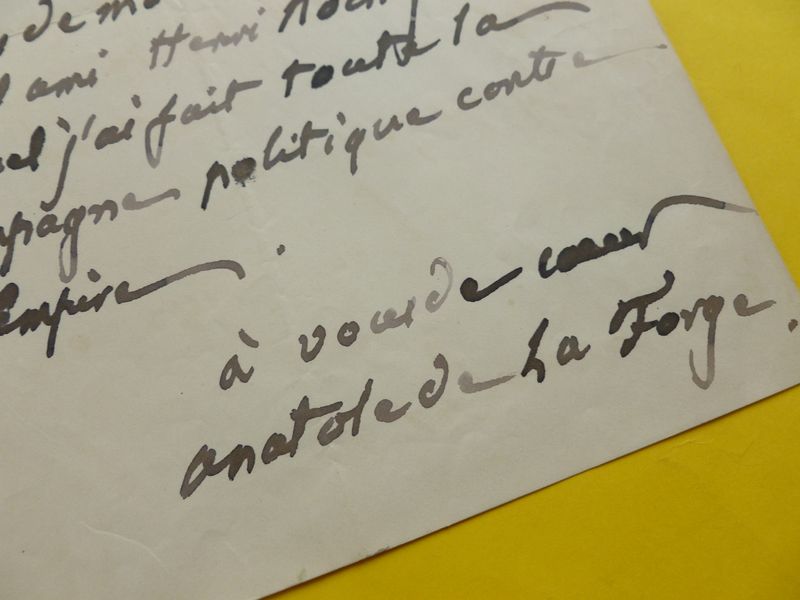 de mo
ami Henri Roch
j'ai fait toute la
mpagne politique contre
Empire.
à vous de cœur
anatole de La Forge.